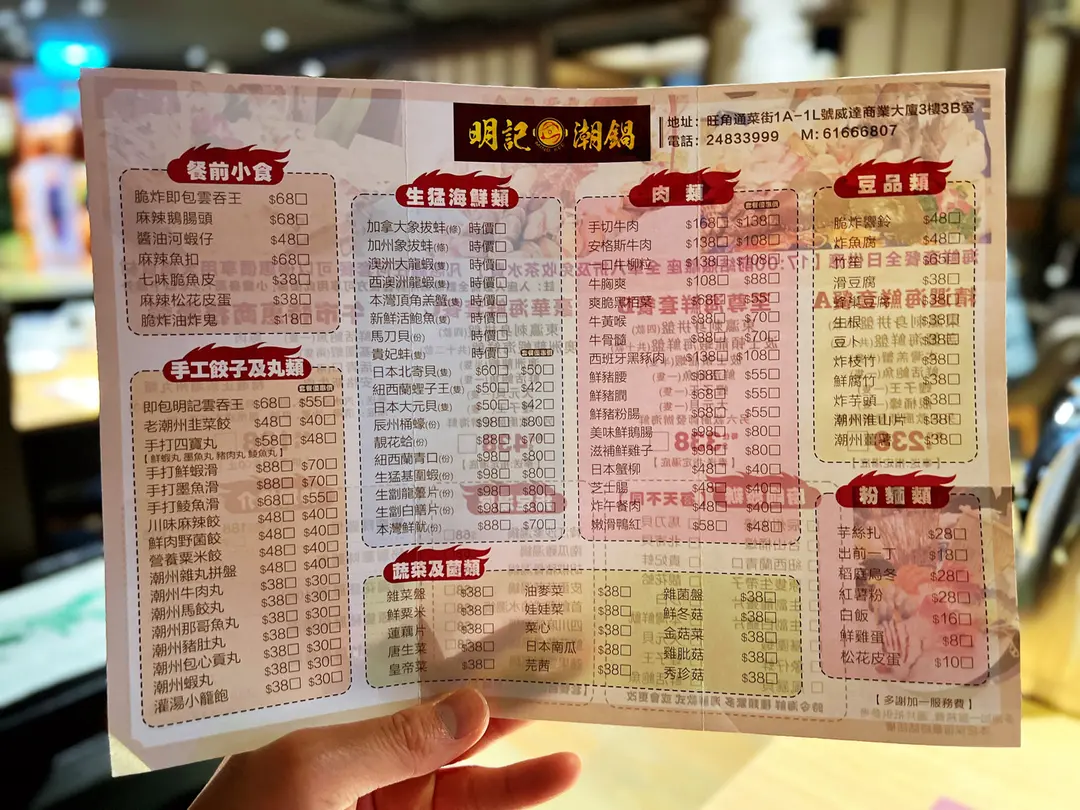 明記潮鍋
地址：旺角通菜街1A-1L號威達商業大廈3樓3B室
電話：24833999 M: 61666807
餐前小食
脆炸即包雲吞王 $68
麻辣鵝腸頭 $68
醬油河蝦仔 $48
麻辣魚扣 $68
七味脆魚皮 $38
麻辣松花皮蛋 $38
脆炸油炸鬼 $18
手工餃子及丸類
套餐優惠價
即包明記雲吞王 $68 $55
老潮州韭菜餃 $48 $40
手打四寶丸 $58 $48
【鮮蝦丸 墨魚丸 豬肉丸 鯪魚丸】
手打鮮蝦滑 $88 $70
手打墨魚滑 $88 $70
手打鯪魚滑 $68 $55
川味麻辣餃 $48 $40
鮮肉野菌餃 $48 $40
營養粟米餃 $48 $40
潮州雜丸拼盤 $48 $40
潮州牛肉丸 $38 $30
潮州馬餃丸 $38 $30
潮州那哥魚丸 $38 $30
潮州豬肚丸 $38 $30
潮州包心貢丸 $38 $30
潮州蝦丸 $38 $30
灌湯小籠飽 $38 $30
生猛海鮮類
加拿大象拔蚌(條) 時價
加州象拔蚌(條) 時價
澳洲大龍蝦(隻) 時價
西澳洲龍蝦(隻) 時價
本灣頂角羔蟹(隻) 時價
新鮮活鮑魚(隻) 時價
馬刀貝(份) 時價
貴妃蚌(隻) 時價
套餐優惠價
日本北寄貝(隻) $60 $50
紐西蘭蟶子王(隻) $50 $42
日本大元貝(隻) $50 $42
辰州桶蠔(份) $98 $80
靚花蛤(份) $88 $70
紐西蘭青口(份) $98 $80
生猛基圍蝦(份) $98 $80
生劏龍躉片(份) $98 $80
生劏白鱔片(份) $98 $80
本灣鮮魷(份) $88 $70
肉類
套餐優惠價
手切牛肉 $168 $138
安格斯牛肉 $138 $108
一口牛柳粒 $138 $108
牛胸爽 $108 $88
爽脆黑栢葉 $68 $55
牛黃喉 $88 $70
牛骨髓 $88 $70
西班牙黑豚肉 $138 $108
鮮豬腰 $68 $55
鮮豬膶 $68 $55
鮮豬粉腸 $68 $55
美味鮮鵝腸 $98 $80
滋補鮮雞子 $98 $80
日本蟹柳 $48 $40
芝士腸 $48 $40
炸午餐肉 $48 $40
嫩滑鴨紅 $58 $48
豆品類
脆炸響鈴 $48
炸魚腐 $48
竹笙 $65
滑豆腐 $38
蜂巢豆腐 $38
生根 $38
豆卜 $38
炸枝竹 $38
鮮腐竹 $38
炸芋頭 $38
潮州淮山片 $38
潮州蘿蔔 $38
蔬菜及菌類
雜菜盤 $38 油麥菜 $38 雜菌盤 $38
鮮粟米 $38 娃娃菜 $38 鮮冬菇 $38
蓮藕片 $38 菜心 $38 金菇菜 $38
唐生菜 $38 日本南瓜 $38 雞肶菇 $38
皇帝菜 $38 芫茜 $38 秀珍菇 $38
粉麵類
芋絲扎 $28
出前一丁 $18
稻庭烏冬 $28
紅薯粉 $28
白飯 $16
鮮雞蛋 $8
松花皮蛋 $10
【多謝加一服務費】